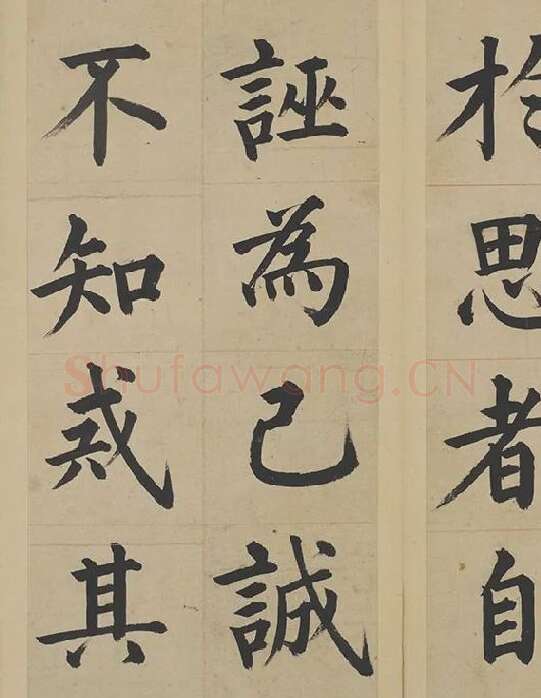 於思者自
誣為己誠
不知戒其
Shufawang.CN